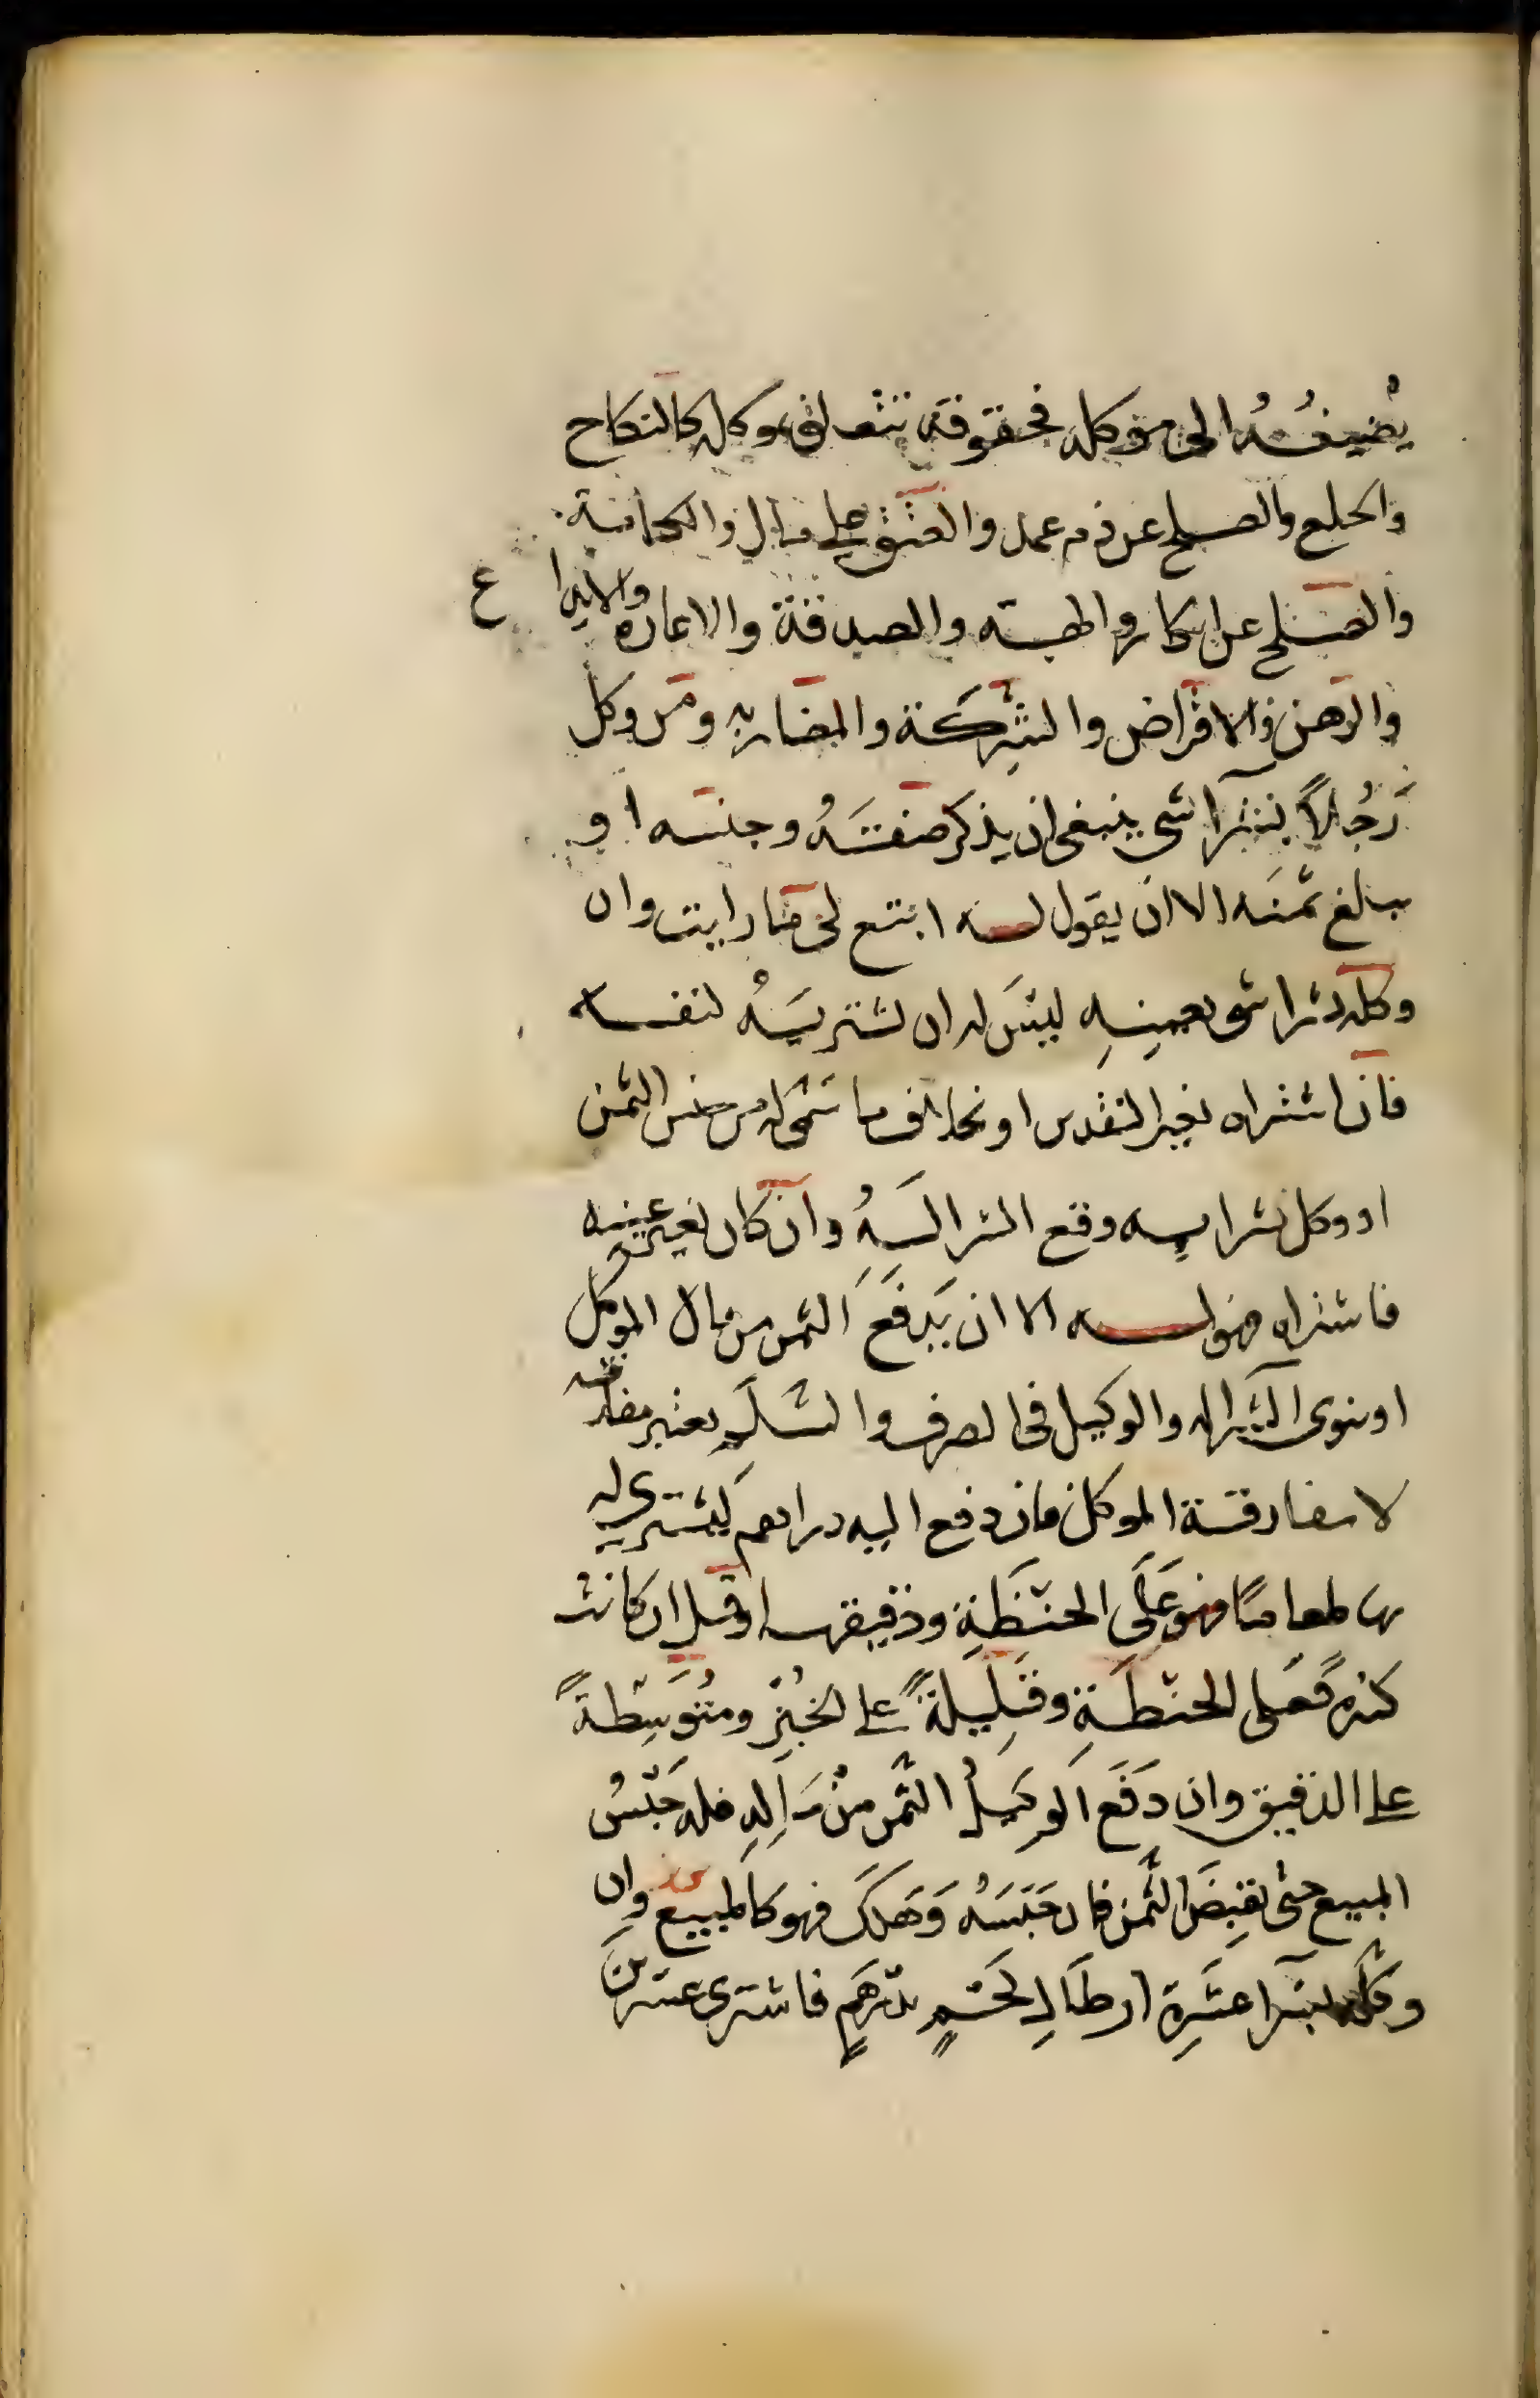 يُضيفُهُ الى موكله فحقوقه تتعلق بموكله كالنكاح
والخلع والصلح عن دم عمد والعتق على مال والكتابة
والصلح عن انكار والهبة والصدقة والاعارة والايداع
والرهن والاقراض والشِركة والمضاربة ومن وكل
رَجُلاً بشرآ شي ينبغي ان يذكر صفتَهُ وجنسه او
مبلغ ثمنَه الا ان يقول له ابتع لي ما رايت وان
وكله بشرا شي بعينِهِ ليسَ له ان يشتريَهُ لنفسه
فان اشتراه بغير النقدين او بخلاف ما سمى له من جنس الثمن
او وكل بشرايه وقع الشرا لَهُ وان كان بغير عينه
فاشتراه فهو له الا ان يَدفَعَ الثمن من مال الموكل
او ينوي الشرآ له والوكيل في الصرف والسَلَمِ يعتبر مفارقته
لا مفارقة الموكل فان دفع اليه دراهم ليشتري له
بها طعاما فهو عَلَى الحنطَةِ ودقيقها وقيل ان كانت
كثيرةً فعلى الحنطَةِ وقَلِيلةً على الخُبْزِ ومُتَوَسِّطةً
على الدقيق وان دَفَعَ الوكيلُ الثمن مِنْ مَالِهِ فله حَبْسُ
المبيع حتى يقبِضَ الثمن فان حَبَسَهُ وَهَلَكَ فهو كالمبيع وان
وكَّله بشرآ عَشَرةِ ارطَالِ لَحْمٍ بدرهَمٍ فاشترى عشرينَ